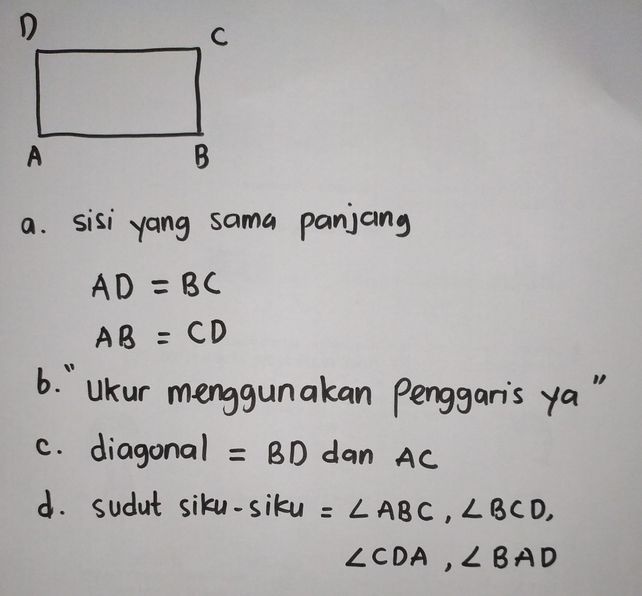 D
C
A
B
a. sisi yang sama panjang
AD = BC
AB = CD
b. "Ukur menggunakan Penggaris ya"
c. diagonal = BD dan AC
d. sudut siku-siku = ∠ABC, ∠BCD,
∠CDA, ∠BAD